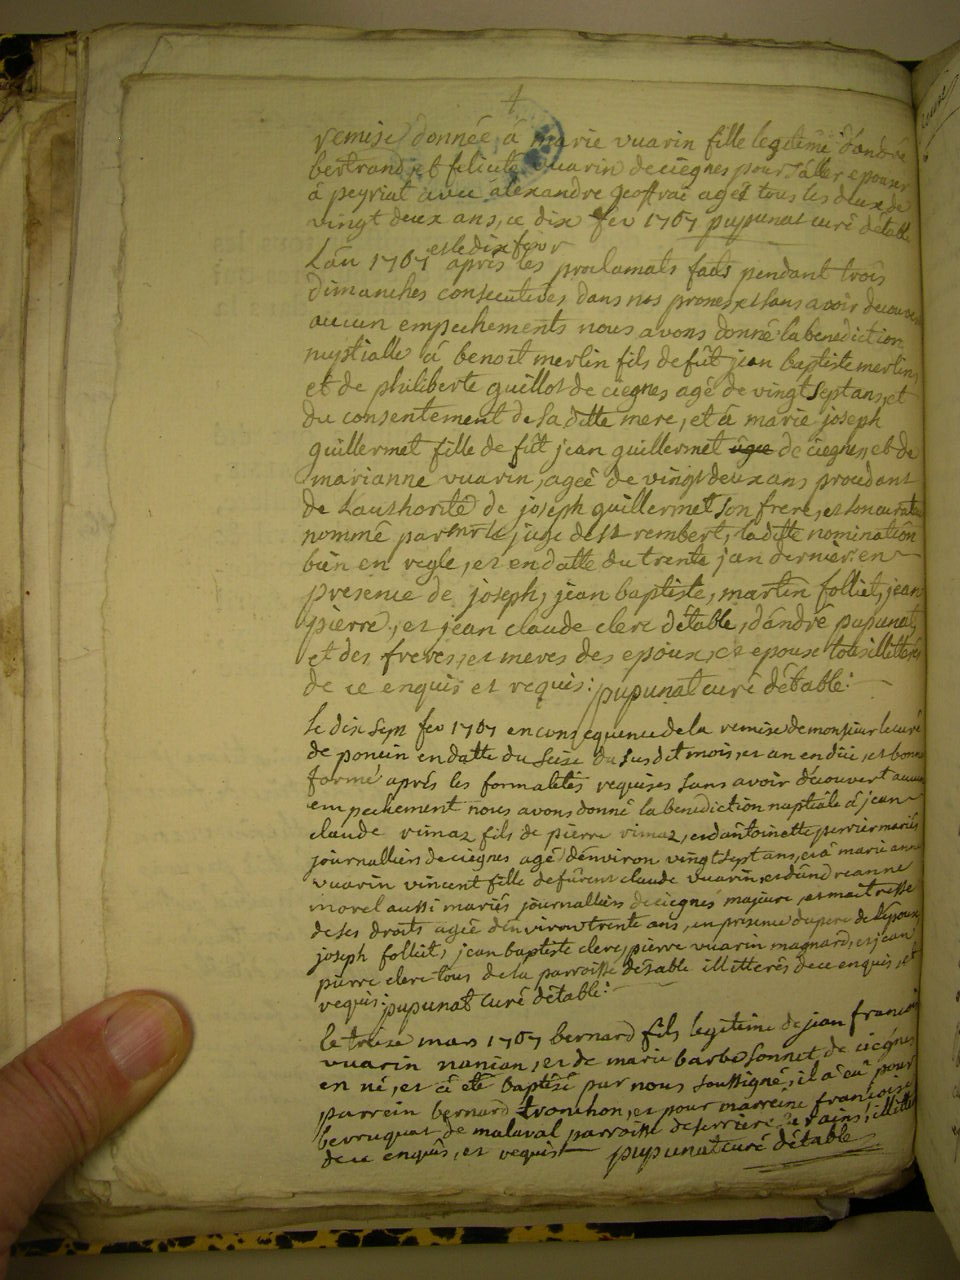 remise donnée à marie vuarin fille legitime d'andre
bertrand, et felicité vuarin de ciegnes pour s'aller epouser
à peyriat avec alexandre geoffrai agés tous les deux de
vingt deux ans, ce dix fev 1767 pupunat curé détable
L'an 1767 et le dix fevr après les proclamats faits pendant trois
dimanches consecutives dans nos prones, et sans avoir decouvert
aucun empechements nous avons donné la benediction
nuptialle à benoit merlin fils de fût jean baptiste merlin,
et de philiberte guillot de ciegnes agé de vingt sept ans, et
du consentement de sa ditte mere, et à marie joseph
guillermet fille de fût jean guillermet de ciegnes, et de
marianne vuarin, ageé de vingt deux ans procedant
de L'authorité de joseph guillermet son frere, et son curateur
nommé par mr le juge de st rembert, la ditte nomination
bien en regle, et en datte du trente jan dernier: en
presence de joseph, jean baptiste, martin folliet, jean
pierre, et jean claude clerc détable, d'andré pupunat,
et des freres, et meres des epoux, et epouse tous illitterés
de ce enquis et requis: pupunat curé détable:
le dix sept fev 1767 en consequence de la remise de monsieur le curé
de poncin en datte du seize du susdit mois, et an en düe, et bonne
forme après les formalités requises sans avoir découvert aucun
empechement nous avons donné la benediction nuptiale à jean
claude vimaz fils de pierre vimaz, et d'antoinette perrier mariés
journalliers de ciegnes agé d'environ vingt sept ans, et à marie anne
vuarin vincent fille de fûrent claude vuarin, et d'andreanne
morel aussi mariés journalliers de ciegnes majeure, et maitresse
de ses droits ageé d'environ trente ans, en presence du pere de l'epoux,
joseph folliet, jean baptiste clerc, pierre vuarin magnard, et jean
pierre clerc tous de la parroisse détable illitterés de ce enquis, et
requis: pupunat curé détable:
le treize mars 1767 bernard fils legitime de jean francois
vuarin nanian, et de marie barbe sonnet de ciegnes
en né, et à eté baptisé par nous soussigné, il à eu pour
parrein bernard tronchon, et pour marreine francoise
berruquat de malaval parroisse de serrieres illitterés
de ce enquis, et requis pupunat curé détable